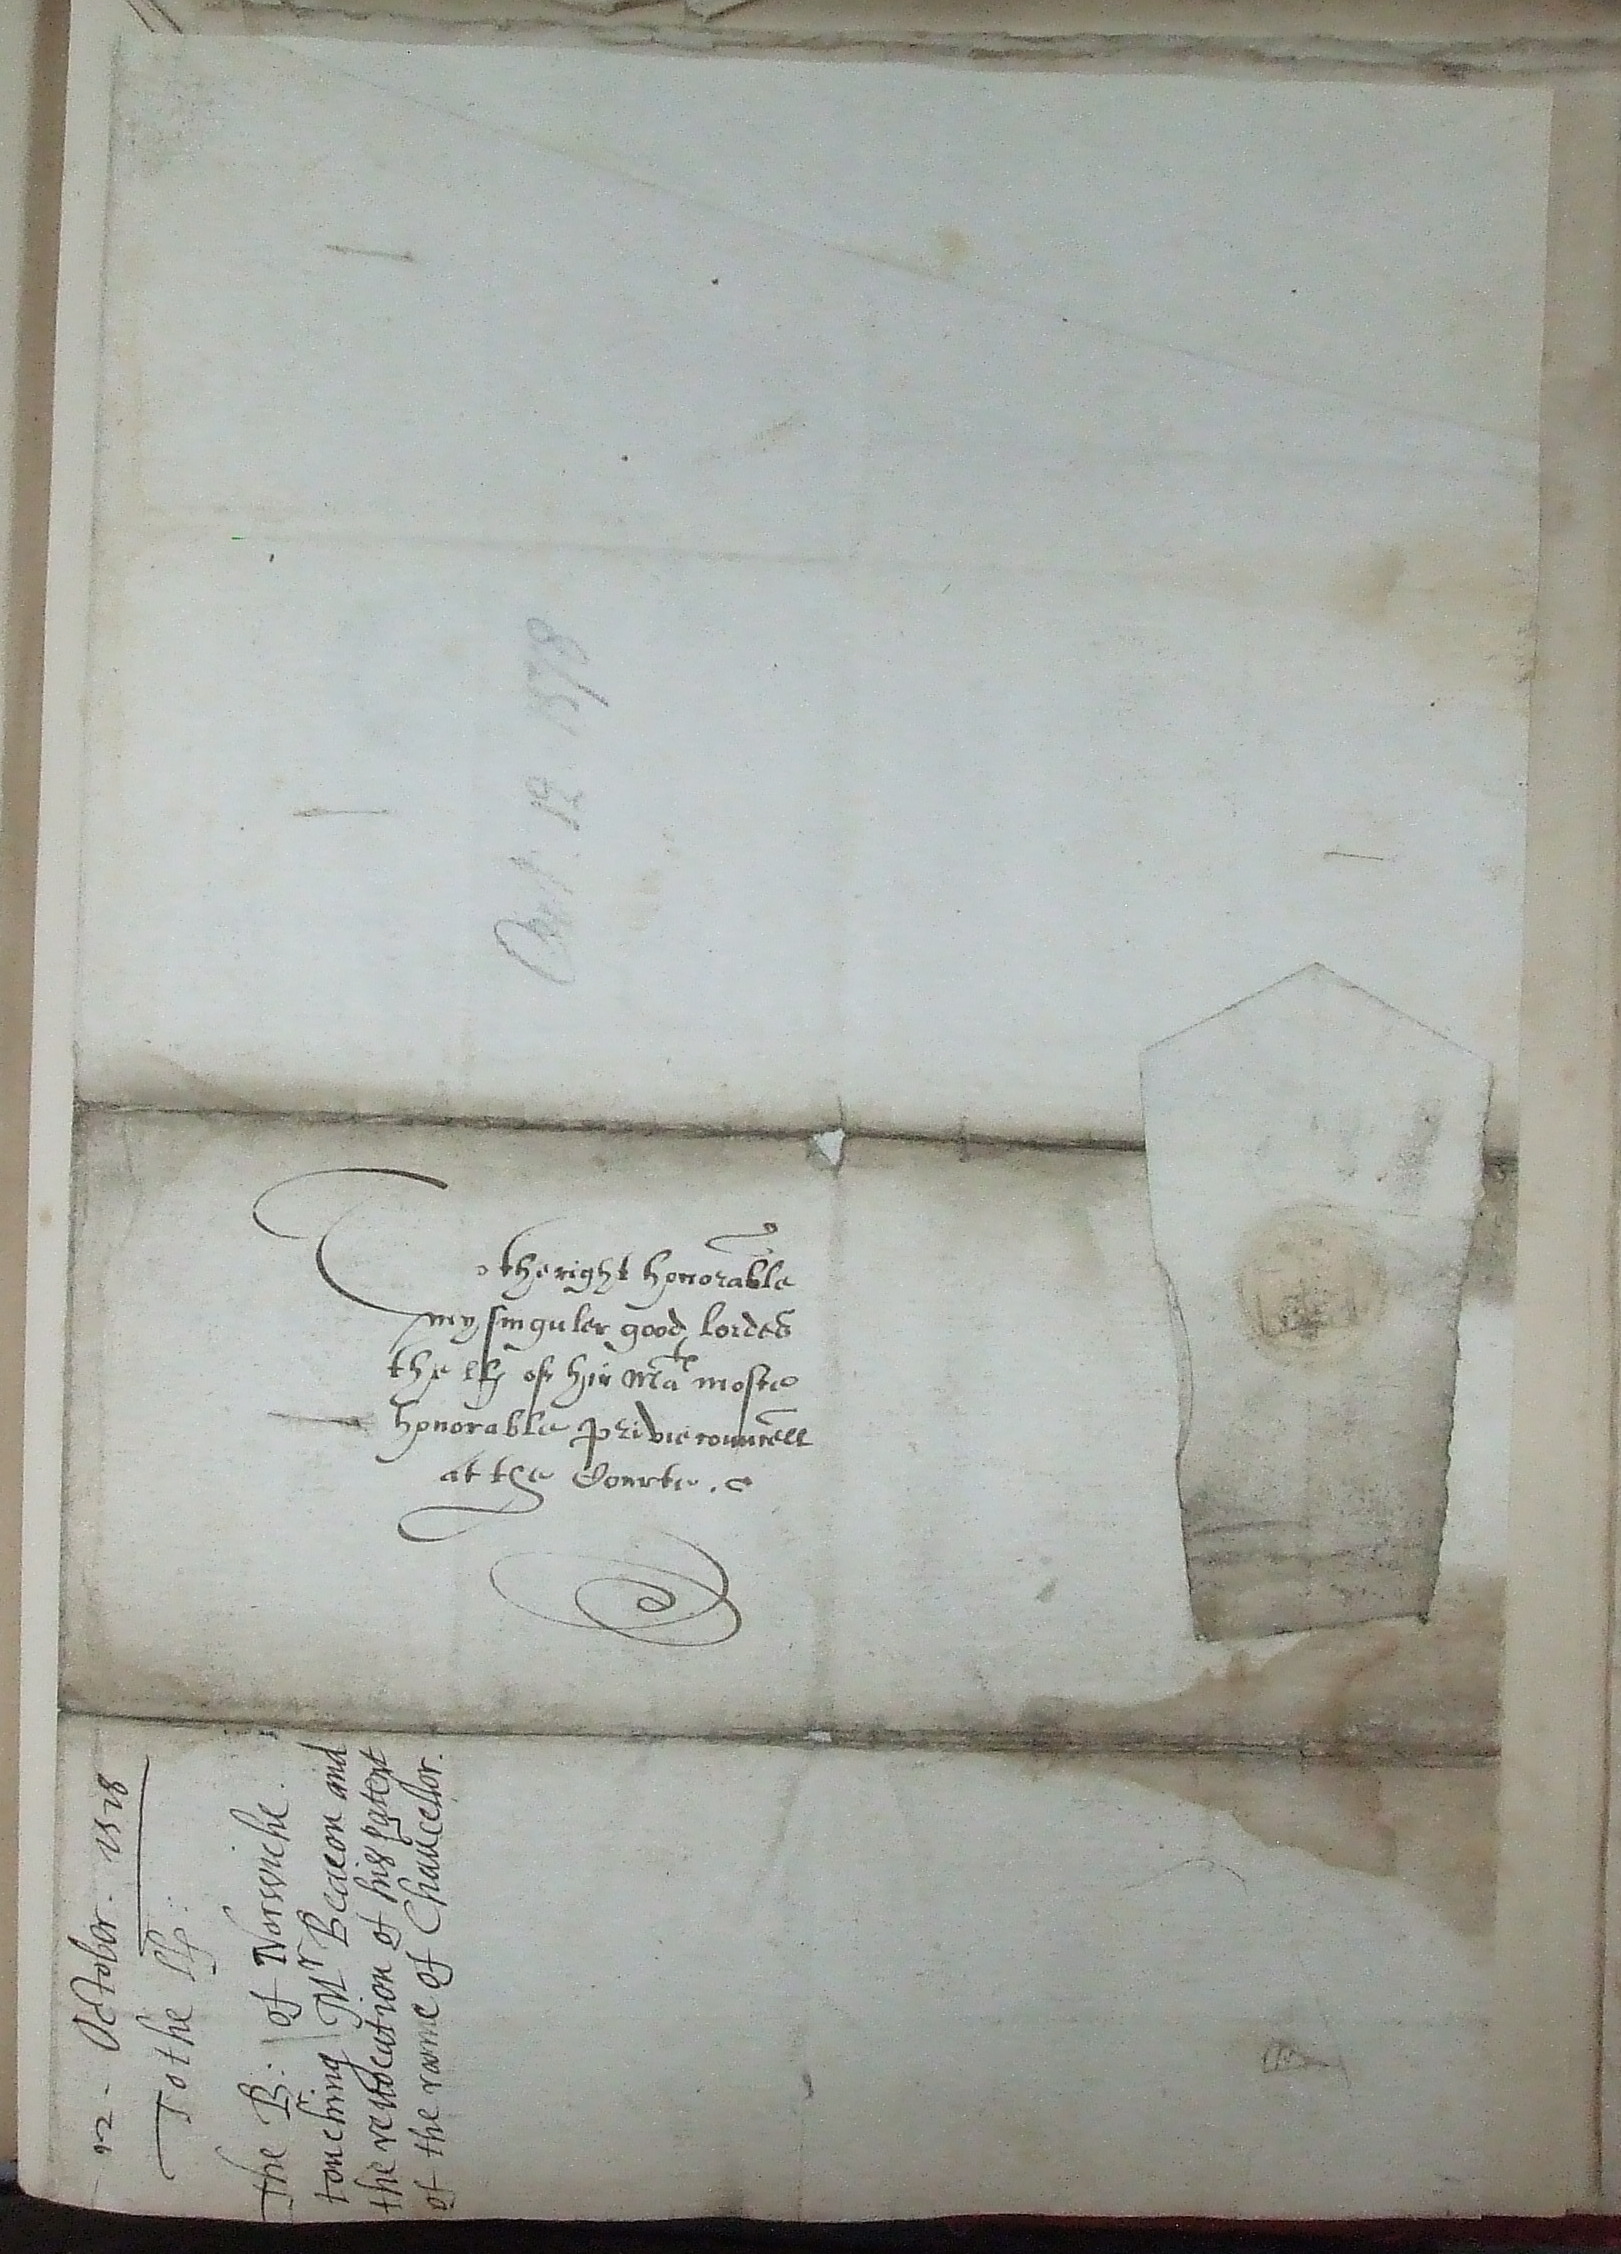 To the right honorable
my singuler good lordes
the LLs of hir Ma<sup>te</sup> moste
honorable privie councell
at the Courte.
12 October. 1578
To the LLs:
The B: of Norwiche.
touching M<sup>r</sup> Beacon and
the revocation of his patent
of the rome of Chancellor.
Oct. 12 1578